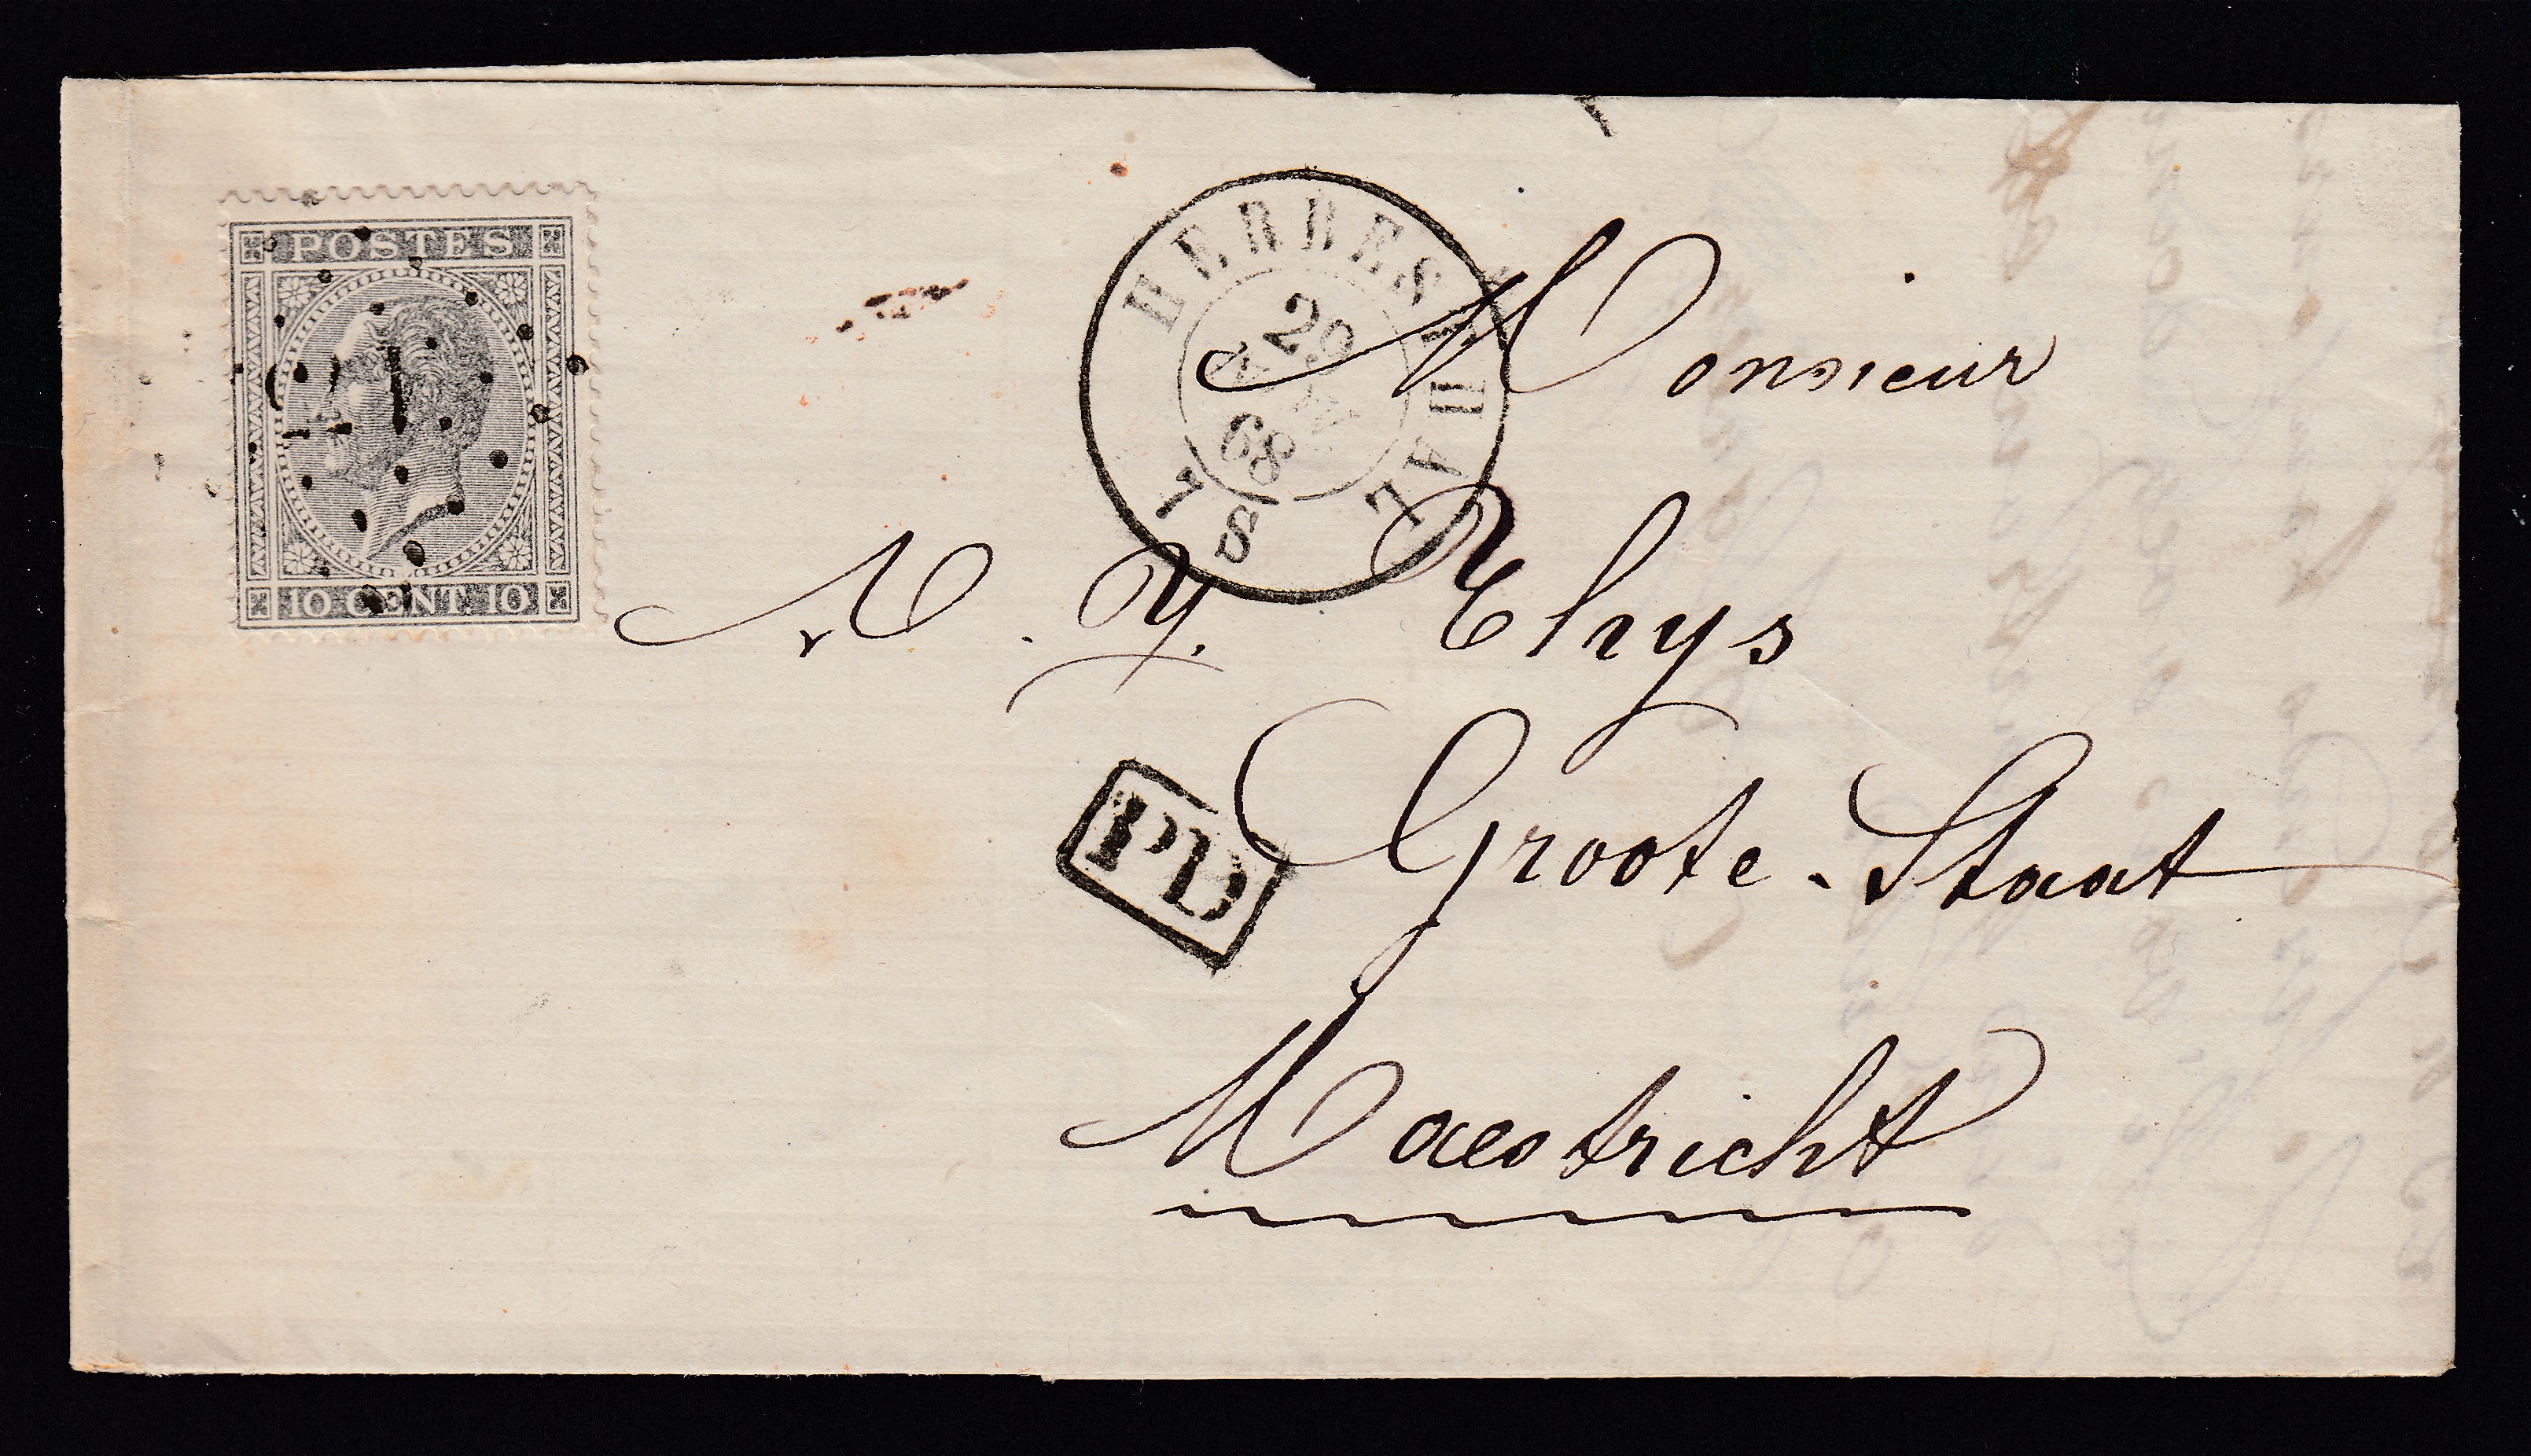 POSTES
10 CENT. 10
HERBESTHAL
29
68
7S
PD
Monsieur
N. Y. Thys
Groote-Staat
Maestricht